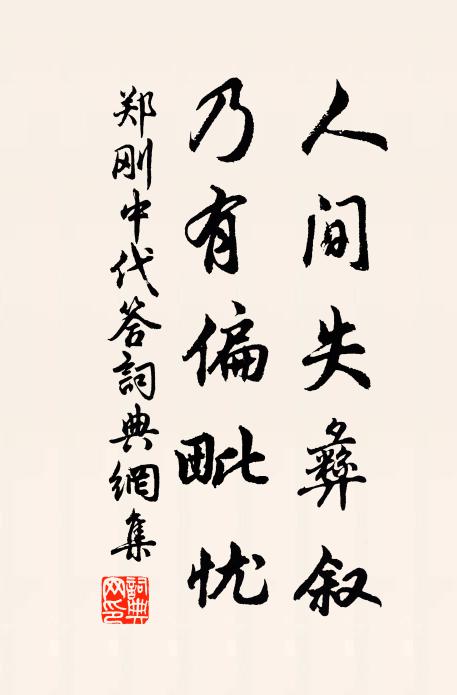 人间失彝叙
乃有偏毗忧
郑刚中代答詞典網集
詞典网印